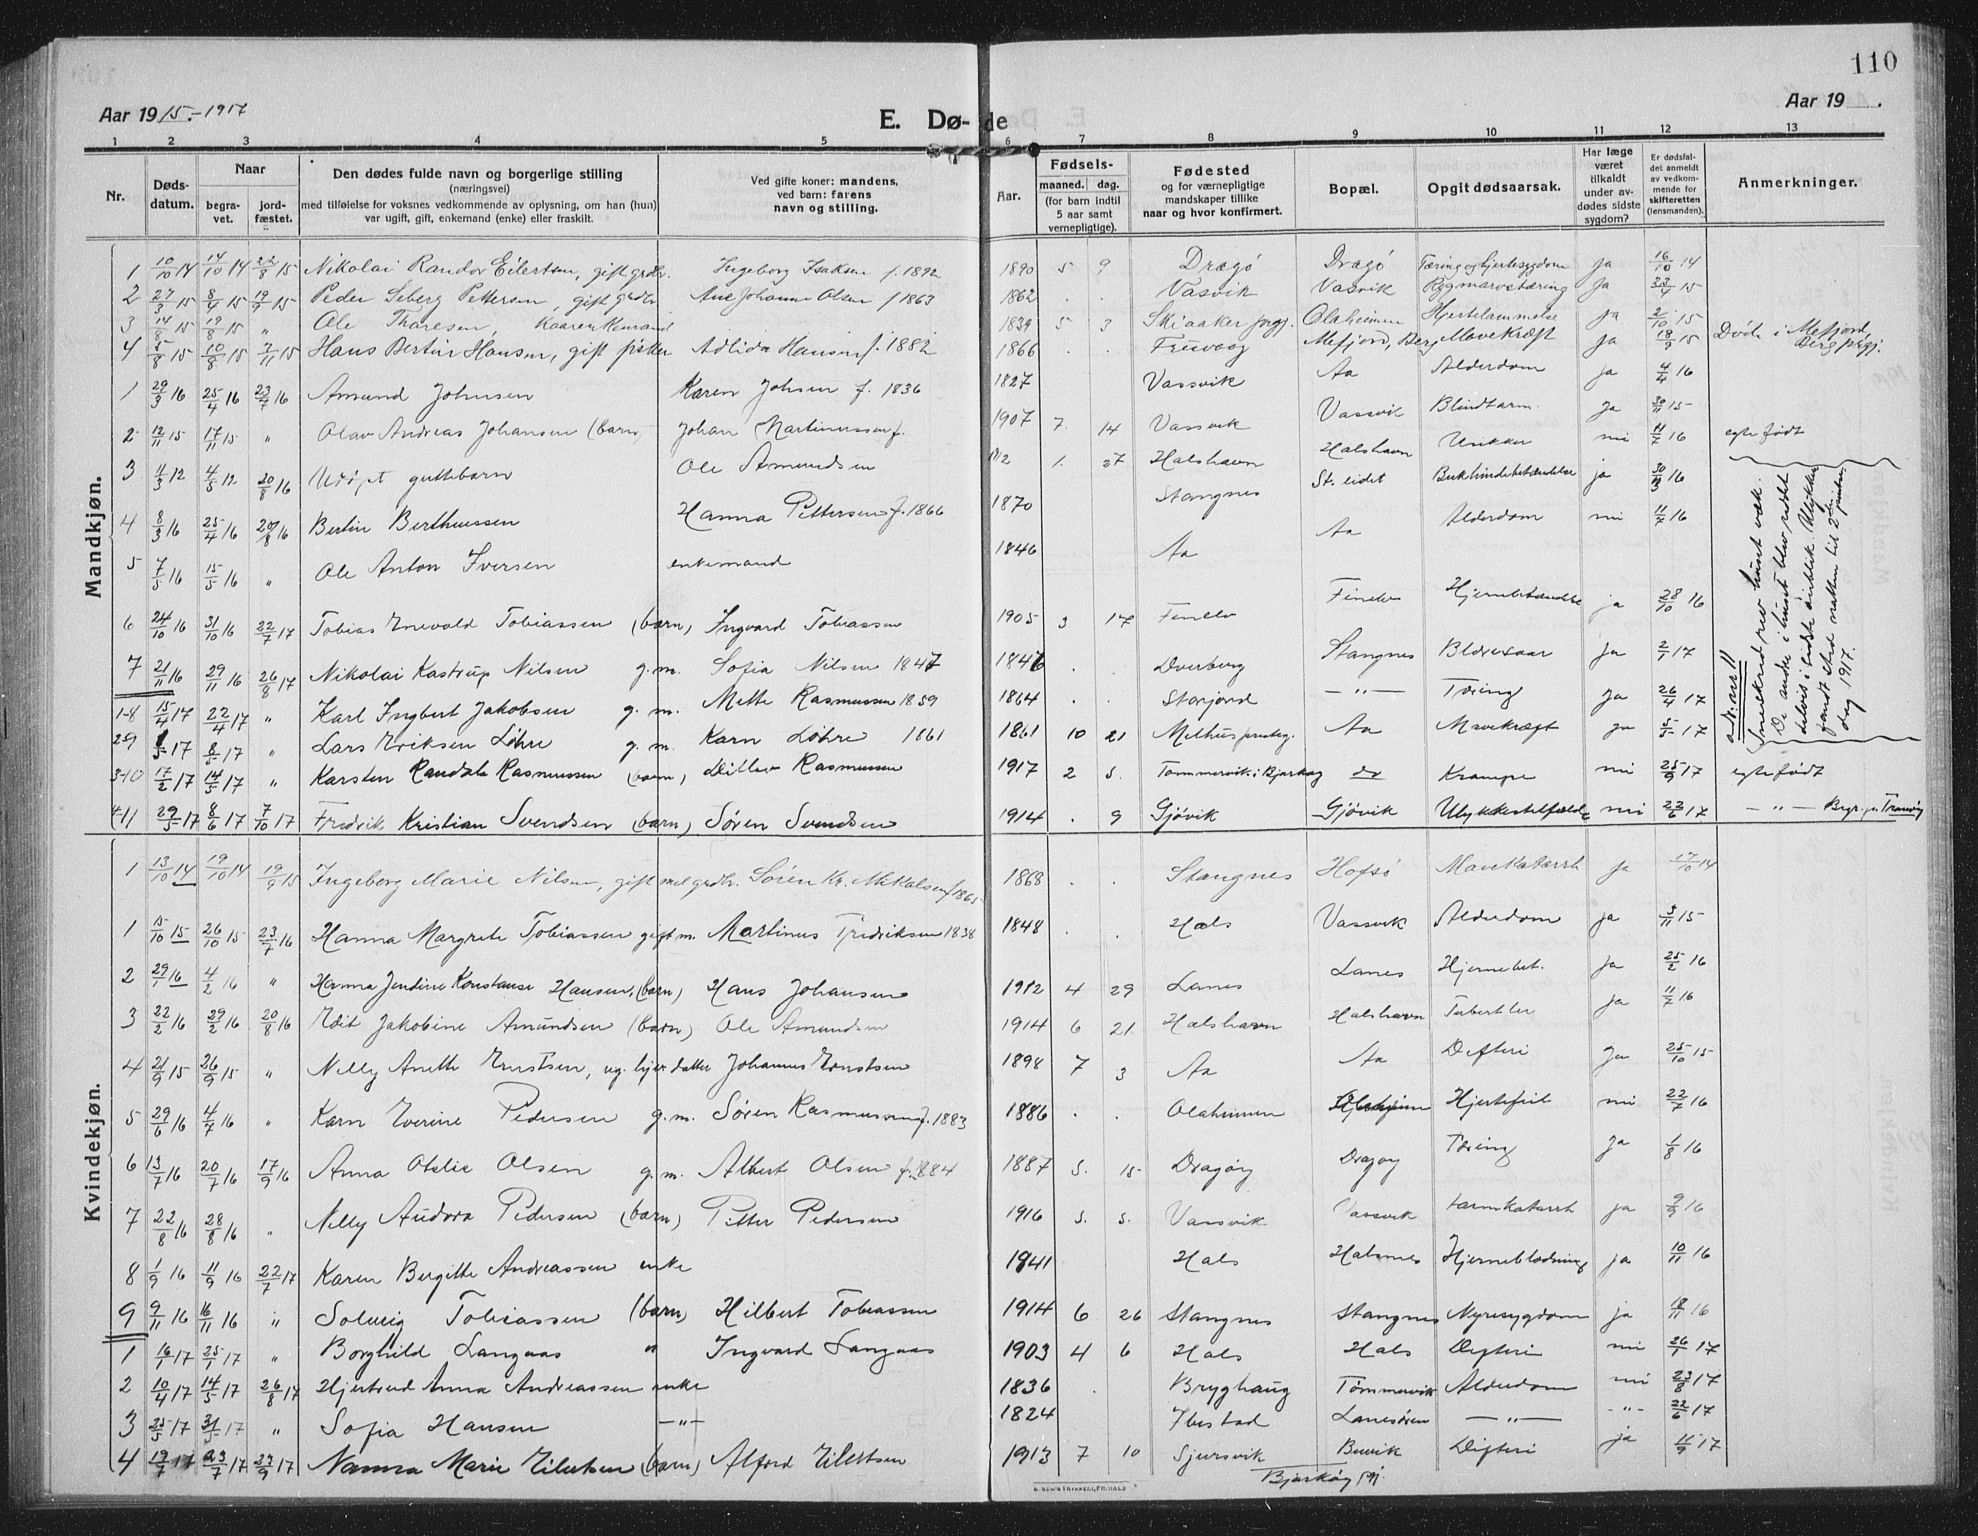 110
Aar 1915.-1917
E. Dø-de
Aar 19    .
1 2 3 4 5 6 7 8 9 10 11 12 13
Nr. | Døds-datum. | Naar begra-vet. | jord-fæstet. | Den dødes fulde navn og borgerlige stilling (næringsvei) med tilføielse for voksnes vedkommende av oplysning, om han (hun) var ugift, gift, enkemand (enke) eller fraskilt. | Ved gifte koner: mandens, ved barn: farens navn og stilling. | Aar. | Fødsels- maaned. dag. (for barn indtil 5 aar samt vernepligtige). | Fødested og for værnepligtige mandskaper tillike naar og hvor konfirmert. | Bopæl. | Opgit dødsaarsak. | Har læge været tilkaldt under av-dødes sidste sygdom? | Er dødsfal-det anmeldt av vedkom-mende for skifteretten (lensmanden). | Anmerkninger.
Mandkjøn.
1 10/10 14 14/10 14 22/8 15 Nikolai Randor Eilertsen, gift grdbr. Ingeborg Isaksen f. 1892 1890 5 9 Dragø Dragø Tæring og hjertesygdom ja 16/10 14
2 27/3 15 8/4 15 19/9 15 Peder Seberg Pettersen, gift grdbr Ane Johanne Olsen f 1863 1862 . . Vasvik Vasvik Rygmarvstæring ja 23/4 15
3 14/8 15 19/8 15 " Ole Tharesen, 1839 5 3 Skiaaker prgj. Olaheimen Hjertelammelse ja 2/10 15
4 5/8 15 10/8 15 7/11 15 Hans Bertin Hansen, gift fisker Adlida Hansen f. 1882 1866 . . Mefjord, Berg Mavekræft ja 18/9 15 Døde i Mefjord, Berg prgj.
1 29/3 16 25/4 16 23/7 16 Amund Johnsen Karen Johsen f. 1836 1827 Vassvik Aa Alderdom ja 4/4 16
2 12/11 15 17/11 15 " Olav Andreas Johansen (barn) Johan Martinussen f. 1907 7. 14 Vassvik Vassvik Blindtarm. ja 30/11 15 egtefødt
3 4/3 12 4/5 12 20/8 16 Udøpt guttebarn Ole Amundsen 1912 1. 27 Halshavn Halshavn nei 11/7 16
4 8/3 16 25/4 16 20/8 16 Bertin Bertheussen Hanna Pettersen f. 1866 1870 Stangnes St. eidet Bukhindebetændelse ja 30/3 16
5 7/5 16 15/5 16 " Ole Anton Iversen enkemand 1846 Aa Aa Alderdom nei 11/7 16
6 24/10 16 31/10 16 22/7 17 Tobias Enevold Tobiassen (barn) Ingvard Tobiassen 1905 3 17 Finelv Finelv Hjernebetændelse ja 28/10 16
7 21/11 16 29/11 16 26/8 17 Nikolai Kastrup Nilsen g. m. Sofia Nilsen 1847 1846 . Dverberg Stangnes Blæresaar ja 2/1 17
1-8 15/4 17 22/4 17 " Karl Ingbert Jakobsen g. m. Mette Rasmussen 1859 1864 Storjord — " — Tæring ja 26/4 17
2-9 1/5 17 8/5 17 " Lars Eriksen Løhre g. m. Karn Løhre 1861 1861 10 21 Melhus prestegj. Aa Mavekræft ja 5/5 17
3-10 17/2 17 14/5 17 " Karsten Randals Rasmussen (barn) Ditlev Rasmussen 1917 2 5. Tømmervik i Bjarkøy do Krampe nei 25/9 17 egtefødt
4-11 29/5 17 8/6 17 7/10 17 Fredrik Kristian Svendsen (barn) Søren Svendsen 1914 . 9 Gjøvik Gjøvik Ulykkestilfælde nei 22/6 17 — " — Begr. pa Tranøy
ad. nr. 11 Snøskred rev huset væk. De andre i huset blev reddet delvis i sidste øieblik. Ulykken fandt sted natten til 2den pinsedag 1917.
Kvindekjøn.
1 13/10 14 19/10 14 19/9 15 Ingeborg Marie Nilsen, gift med grdbr. Søren Kr. Nikolaisen f 1865 1868 . . Stangnes Hofsø Mavekatarrh ja 17/10 14
1 15/10 15 26/10 15 23/7 16 Hanna Margrete Tobiassen gift m. Martinus Fredriksen 1838 1848 . . Hals Vassvik Alderdom ja 3/11 15
2 29/1 16 4/2 16 " Hanna Jendine Konstanse Hansen, (barn) Hans Johansen 1912 4 29 Lanes Lanes Hjernebet. ja 25/2 16
3 22/2 16 29/2 16 20/8 16 Edit Jakobine Amundsen (barn) Ole Amundsen 1914 6 21 Halshavn Halshavn Tuberkler ja 11/7 16
4 21/9 15 26/9 15 " Nelly Anette Ernstsen, ug. hj.v. datter Johannes Ernstsen 1898 7 3 Aa Aa Difteri ja 25/10 15
5 29/6 16 4/7 16 " Karn Everine Pedersen g. m. Søren Rasmussen f. 1883 1886 . . Olaheimen Hjertefeil nei 22/7 16
6 13/7 16 20/7 16 17/9 16 Anna Otelie Olsen g. m. Albert Olsen f. 1884 1887 5. 15 Dragøy Dragøy Tæring ja 1/8 16
7 22/8 16 28/8 16 " Nelly Audora Pedersen (barn) Petter Pedersen 1916 5. 5. Vassvik Vassvik tarmkatarrh ja 9/9 16
8 1/9 16 11/9 16 22/7 17 Karen Bergitte Andreassen enke 1841 Hals Halsnes Hjerneblødning ja 10/11 16
9 9/11 16 16/11 16 " Solveig Tobiassen (barn) Hilbert Tobiassen 1914 6 26 Stangnes Stangnes Nyresygdom ja 18/11 16
1 16/1 17 25/1 17 " Borghild Langaas " Ingvard Langaas 1903 4 6 Hals Hals Difteri nei 26/1 17
2 10/4 17 14/5 17 26/8 17 Hjertrud Anna Andreassen enke 1836 . Bryghaug Tømmervik Alderdom nei 23/8 17
3 25/5 17 31/5 17 " Sofia Hansen — " — 1824 Ibestad Lanesøren — " — - " - 22/6 17
4 19/7 17 23/7 17 23/9 17 Nanna Marie Eilertsen (barn) Alford Eilertsen 1913 7 10 Sjursvik Difteri ja 11/9 17
Bjarkøy pgj.